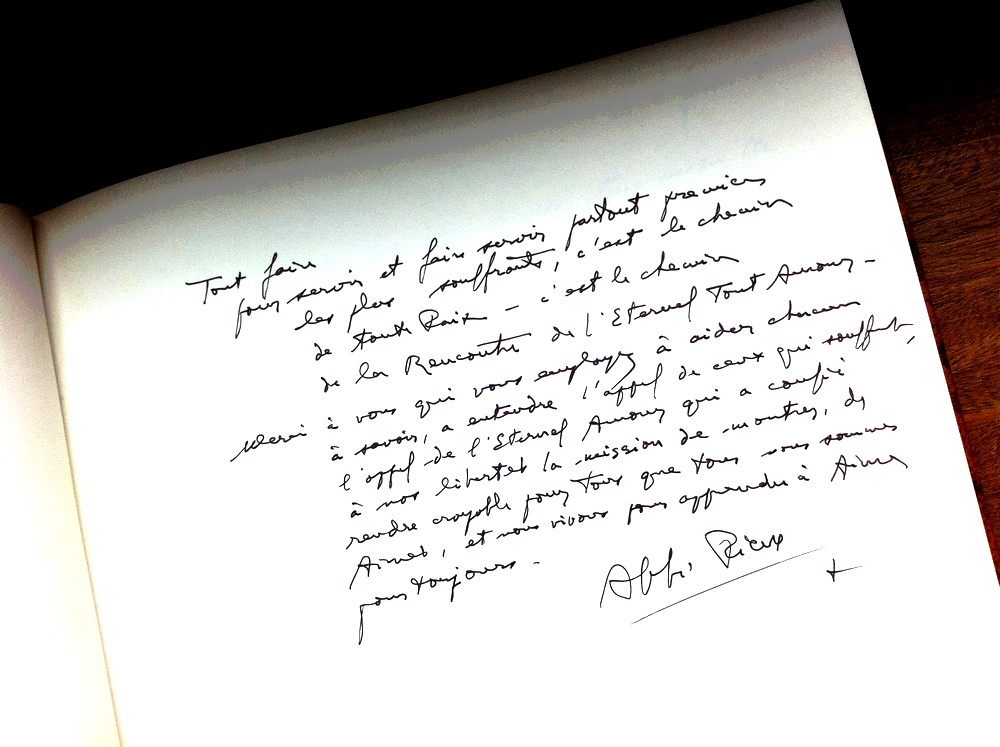 Tout faire
pour servir et faire servir partout premiers
les plus souffrants, c'est le chemin
de toute Paix - c'est le chemin
de la Rencontre de l'Eternel Tout Amour -
Merci à vous qui vous employez à aider chacun
à savoir, a entendre l'appel de ceux qui souffrent,
l'appel de l'Eternel Amour qui a confié
à nos libertés la mission de montrer, de
rendre croyable pour Tous que tous nous sommes
Aimés, et nous vivons pour apprendre à Aimer
pour toujours -
Abbé Pierre
+